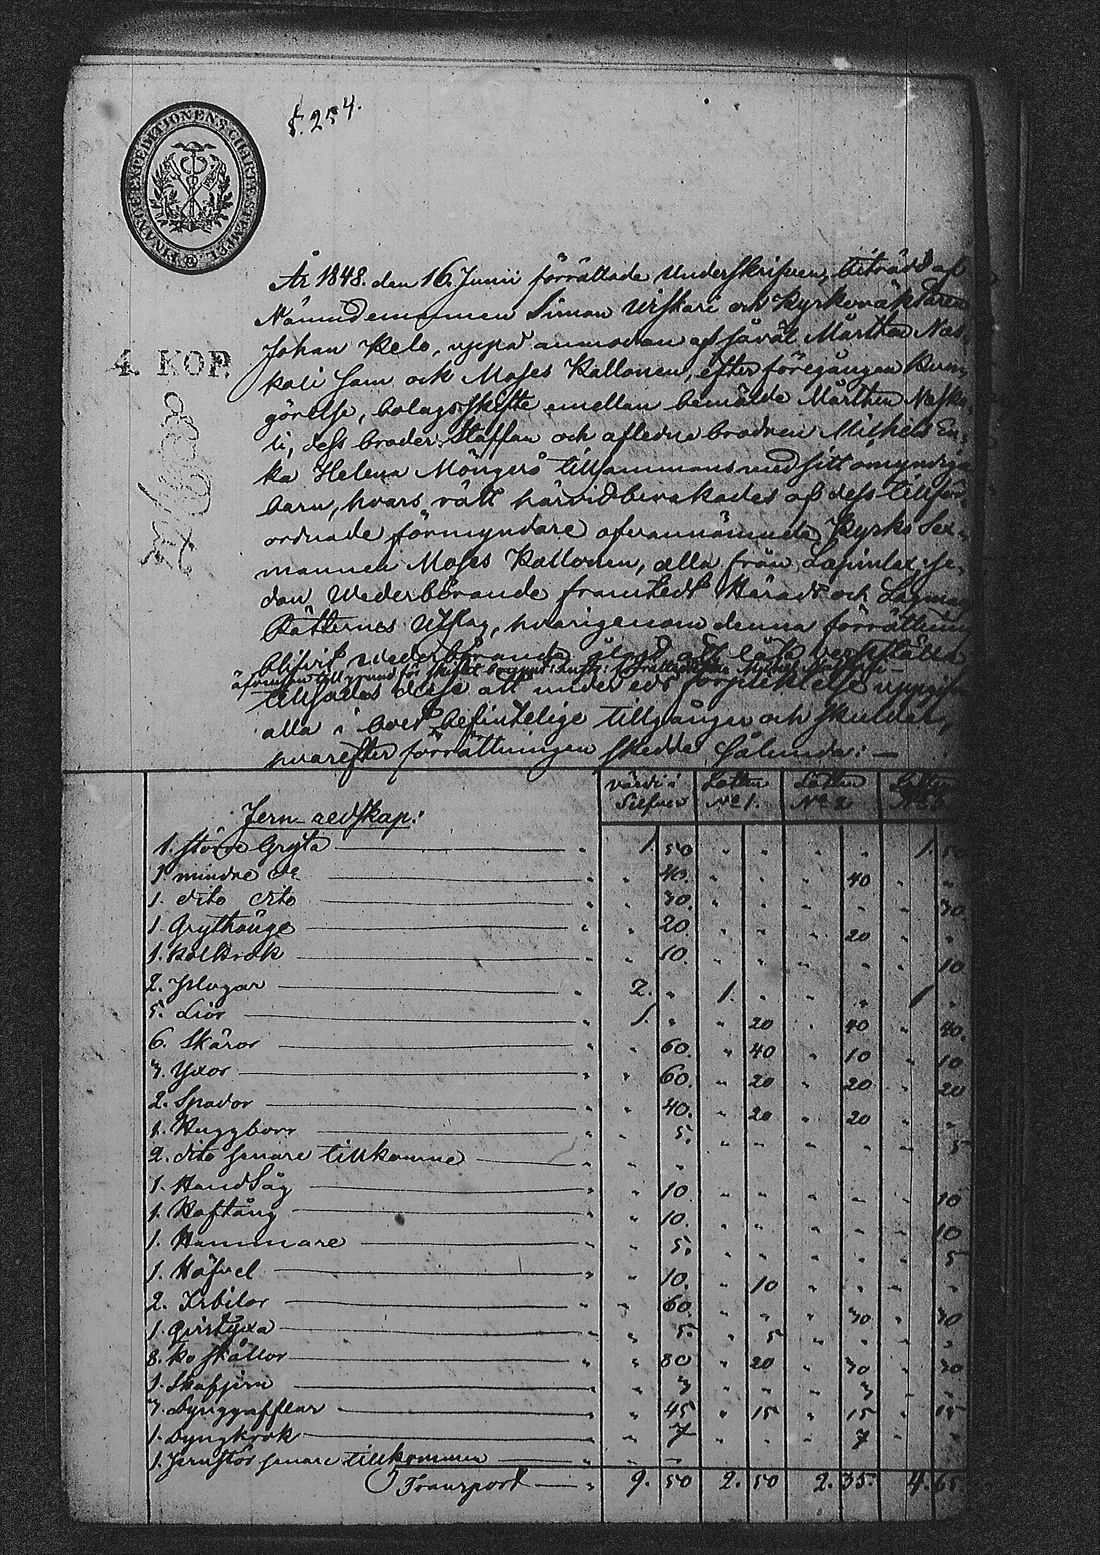 FINANCE EXPEDITIONENS CHARTÆ STEMPEL
§. 254.
4. KOP.
År 1848. den 16. Junii förrättade Underskrifven, biträdd af
Nämndemannen Simon Uiskari och Kyrkoväktaren
Johan Kelo, uppå anmodan af såväl Mårthen Nas-
koli som ock Moses Kallonen, efter föregången kun-
görelse, bolagsskifte emellan bemälde Mårthen Nasko-
li, dess broder Staffan och aflidne brodren Michels En-
ka Helena Mönger tillsammans med sitt omyndiga
barn, hvars rätt härvid bevakades af dess tillför-
ordnade förmyndare ofvannämnde Kyrko Sex-
mannen Moses Kallonen, alla från se-
dan Wederbörande framtedt Härads och Lagmans
Rätternes Utslag, hvarigenom denna förrättning
blifvit wederbörande låta verkställa
äfvensom till grund för skiftet
tillsades desse att under eds förpliktelse uppgifva
alla i boet befintelige tillgångar och skulder,
hvarefter förrättningen skedde sålunda: —
Jern redskap:
värdi i Silfver Lotten No 1. Lotten No 2 Lotten No 3
1. större Gryta — " 1. 50 " " " " 1. 50
1. mindre do — " " 40. " " " 40 " "
1. dito dito — " " 30. " " " " " 30.
1. Grythänge — " " 20. " " " 20 " "
1. Kolkrok — " " 10. " " " " " 10
2. Plogar — " 2. " 1. " " " 1 "
5. Liar — " 1. " " 20 " 40 " 40.
6. Skäror — " " 60. " 40 " 10 " 10
7. Yxor — " " 60. " 20 " 20 " 20
2. Spador — " " 40. " 20 " 20 " "
1. Huggborr — " " 5. " " " " " 5
2. dito senare tillkomne — " " "
1. Handsåg — " " 10. " " " " " 10
1. Hoftång — " " 10. " " " " " 10
1. Hammare — " " 5. " " " " " 5
1. Höfvel — " " 10. " 10 " " " "
2. Isbilar — " " 60. " " " 30 " 30
1. — " " 5. " 5 " " " "
8. Ko skällor — " " 80 " 20 " 30 " 30
1. Skafjern — " " 3 " " " 3 " "
3. Dynggafflar — " " 45 " 15 " 15 " 15
1. Dyngkrok — " " 7 " " " 7 " "
1. Jernstör senare tillkommen — " " —
Transport — " 9. 50 2. 50 2. 35. 4. 65.